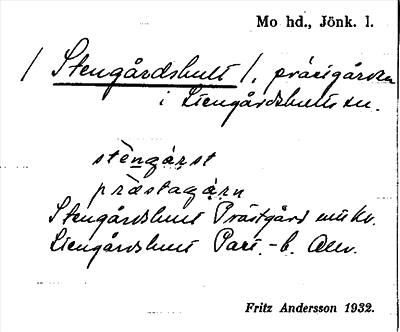 Mo hd., Jönk. l.
/ Stengårdshult /, prästgården
i Stengårdshults sn.
stèngárst
præ̀stagáṛn
Stengårdshult Prästgård mtl kv.
Stengårdshult Past.-b. Allv.
Fritz Andersson 1932.